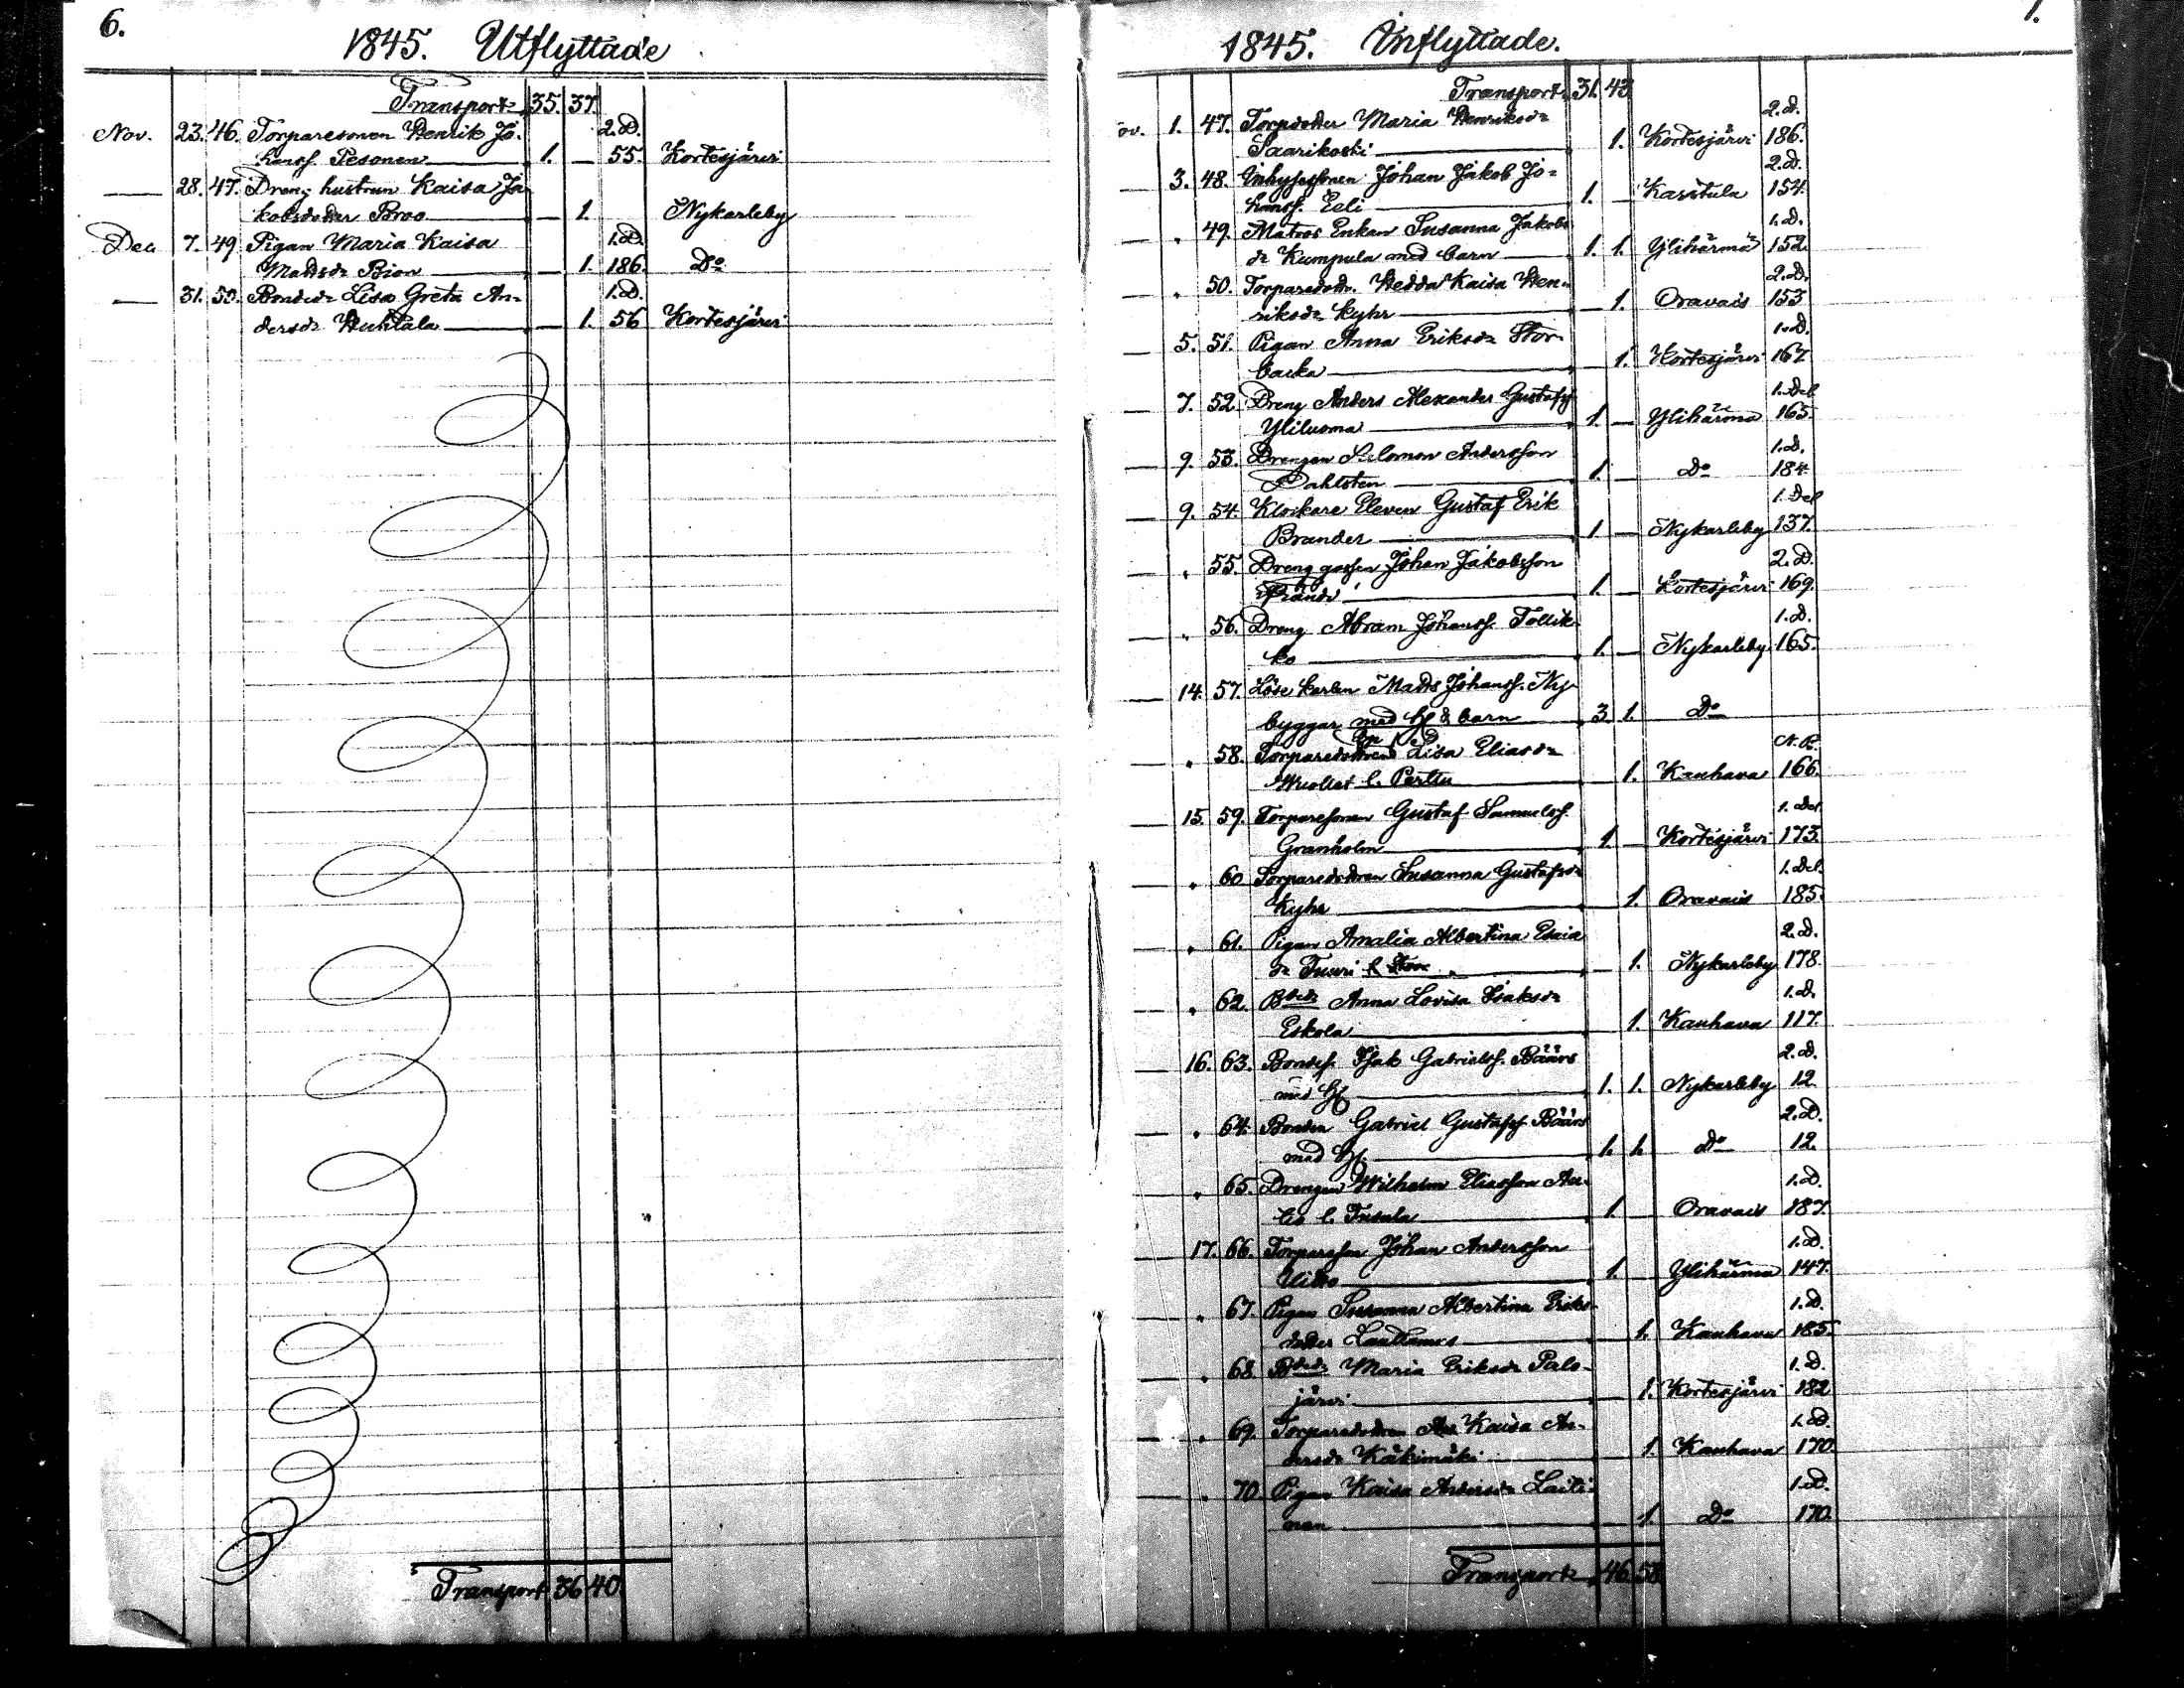 6.
1845. Utflyttade
Transport 35. 37.
Nov. 23. 46. Torparesonen Henrik Jo- 2.D.
hanss. Pesonen 1. — 55. Kortesjärvi
— 28. 47. Dreng hustrun Kaisa Ja
kobsdotter Broo — 1. Nykarleby
Dec 7. 49 Pigan Maria Kaisa 1.D.
Mattsdr Bion — 1. 186. Do
— 31. 50. Bondedr Lisa Greta An- 1.D.
dersdr Huhtala — 1. 56 Kortesjärvi
Transport 36 40.
1.
1845. Inflyttade.
Transport 31. 43
ov. 1. 47. Torpdotter Maria Henriksdr 2.D.
Saarikoski 1. Kortesjärvi 186.
— 3. 48. Inhysessonen Johan Jakob Jo- 2.D.
hanss. Eeli 1. — Karstula 154.
— „ 49. Matros Enkan Susanna Jakobs 1.D.
dr Kumpula med barn 1. 1. Ylihärmä 152.
„ 50. Torparedotr. Hedda Kaisa Hen- 2.D.
riksdr Kyhr — 1. Oravais 153
— 5. 51. Pigan Anna Eriksdr Stor- 1.D.
backa — 1. Kortesjärvi 167
— 7. 52 Dreng Anders Alexander Gustafss 1.Del
Yliluoma 1. — Ylihärmä 165.
— 9. 53. Drengen Salomon Andersson 1.D.
Dahlsten 1. Do 184
— 9. 54. Klockare Eleven Gustaf Erik 1.Del
Brander 1 — Nykarleby 137.
— „ 55. Dreng gossen Johan Jakobsson 2.D.
1. — Kortesjärvi 169.
— „ 56. Dreng Abram Johanss. Tollik- 1.D.
ko 1. — Nykarleby 165.
— 14. 57. Löse karlen Matts Johanss. Ny-
byggar med H & barn 3. 1. Do
— „ 58. Torparedottren Lisa Eliasdr N.B.
l. Perttu 1. Kauhava 166.
— 15. 59. Torparesonen Gustaf Samuelss. 1.Del
Granholm 1. — Kortesjärvi 173.
— „ 60 Torparedottren Susanna Gustafsdr 1.Del.
Kyhr 1. Oravais 185.
— „ 61. Pigan Amalia Albertina Esaia 2.D.
dr Tuuri — 1. Nykarleby 178.
— „ 62. Bdedr Anna Lovisa Isaksdr 1.D.
Eskola 1. Kauhava 117.
— 16. 63. Bondes. Isak Gabrielss. Bäärs 2.D.
med H 1. 1. Nykarleby 12
— „ 64. Bonden Gabriel Gustafss Bäärs 2.D.
med H. 1. 1. Do 12.
— „ 65. Drengen Wilhelm Eliasson An- 1.D.
l. Tusala 1. Oravais 187.
— 17. 66. Torpareson Johan Andersson 1.D.
1. Ylihärma 147.
— „ 67. Pigan Susanna Albertina Eriks- 1.D.
dotter 1. Kauhava 185.
— „ 68. Bdedr Maria Eriksdr Palo- 1.D.
järvi 1. Kortesjärvi 182
— „ 69. Torparedottren Kaisa An- 1.D.
dersdr Käkimäki 1. Kauhava 170.
— „ 70 Pigan Kaisa Andersdr Laiti- 1.D.
nen — 1. Do 170.
Transport 46 58